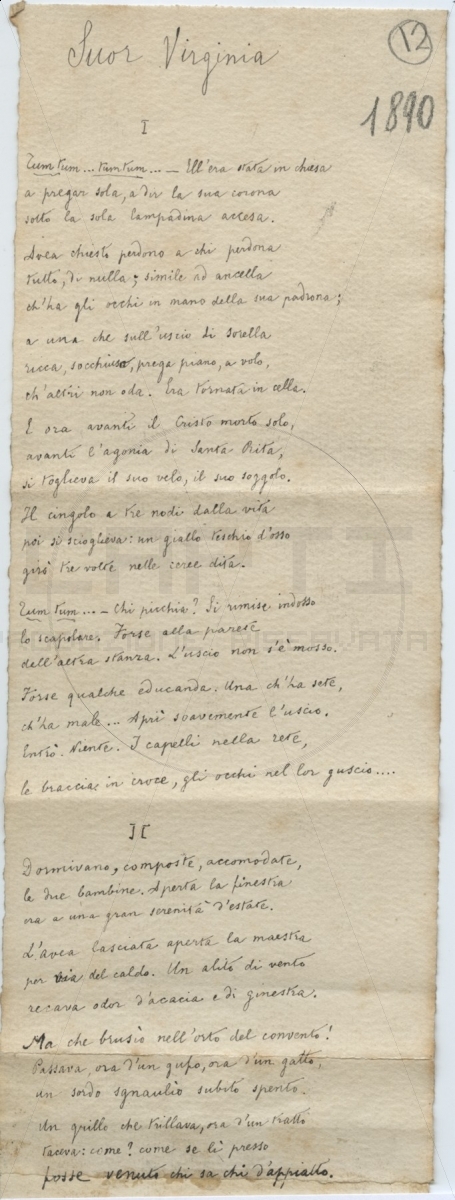 Suor Virginia
12
1890
I
Tum tum... tum tum... — Ell'era stata in chiesa
a pregar sola, a dir la sua corona
sotto la sola lampadina accesa.
Avea chiesto perdono a chi perdona
tutto, di nulla; simile ad ancella
ch'ha gli occhi in mano della sua padrona;
a una che sull'uscio di sorella
ricca, socchiuso, prega piano, a volo,
ch'altri non oda. Era tornata in cella.
E ora avanti il Cristo morto solo,
avanti l'agonia di Santa Rita,
si toglieva il suo velo, il suo soggolo.
Il cingolo a tre nodi dalla vita
poi si scioglieva: un giallo teschio d'osso
girò tre volte nelle ceree dita.
Tum tum... — Chi picchia? Si rimise indosso
lo scapolare. Forse alla parete
dell'altra stanza. L'uscio non s'è mosso.
Forse qualche educanda. Una ch'ha sete,
ch'ha male... Aprì soavemente l'uscio.
Entrò. Niente. I capelli nella rete,
le braccia in croce, gli occhi nel lor guscio....
II
Dormivano, composte, accomodate,
le due bambine. Aperta la finestra
era a una gran serenità d'estate.
L'avea lasciata aperta la maestra
per via del caldo. Un alito di vento
recava odor d'acacia e di ginestra.
Ma che brusìo nell'orto del convento!
Passava, ora d'un gufo, ora d'un gatto,
un sordo sgnaulìo subito spento.
Un grillo che trillava, ora d'un tratto
taceva: come? come se lì presso
fosse venuto chi sa chi d'appiatto.